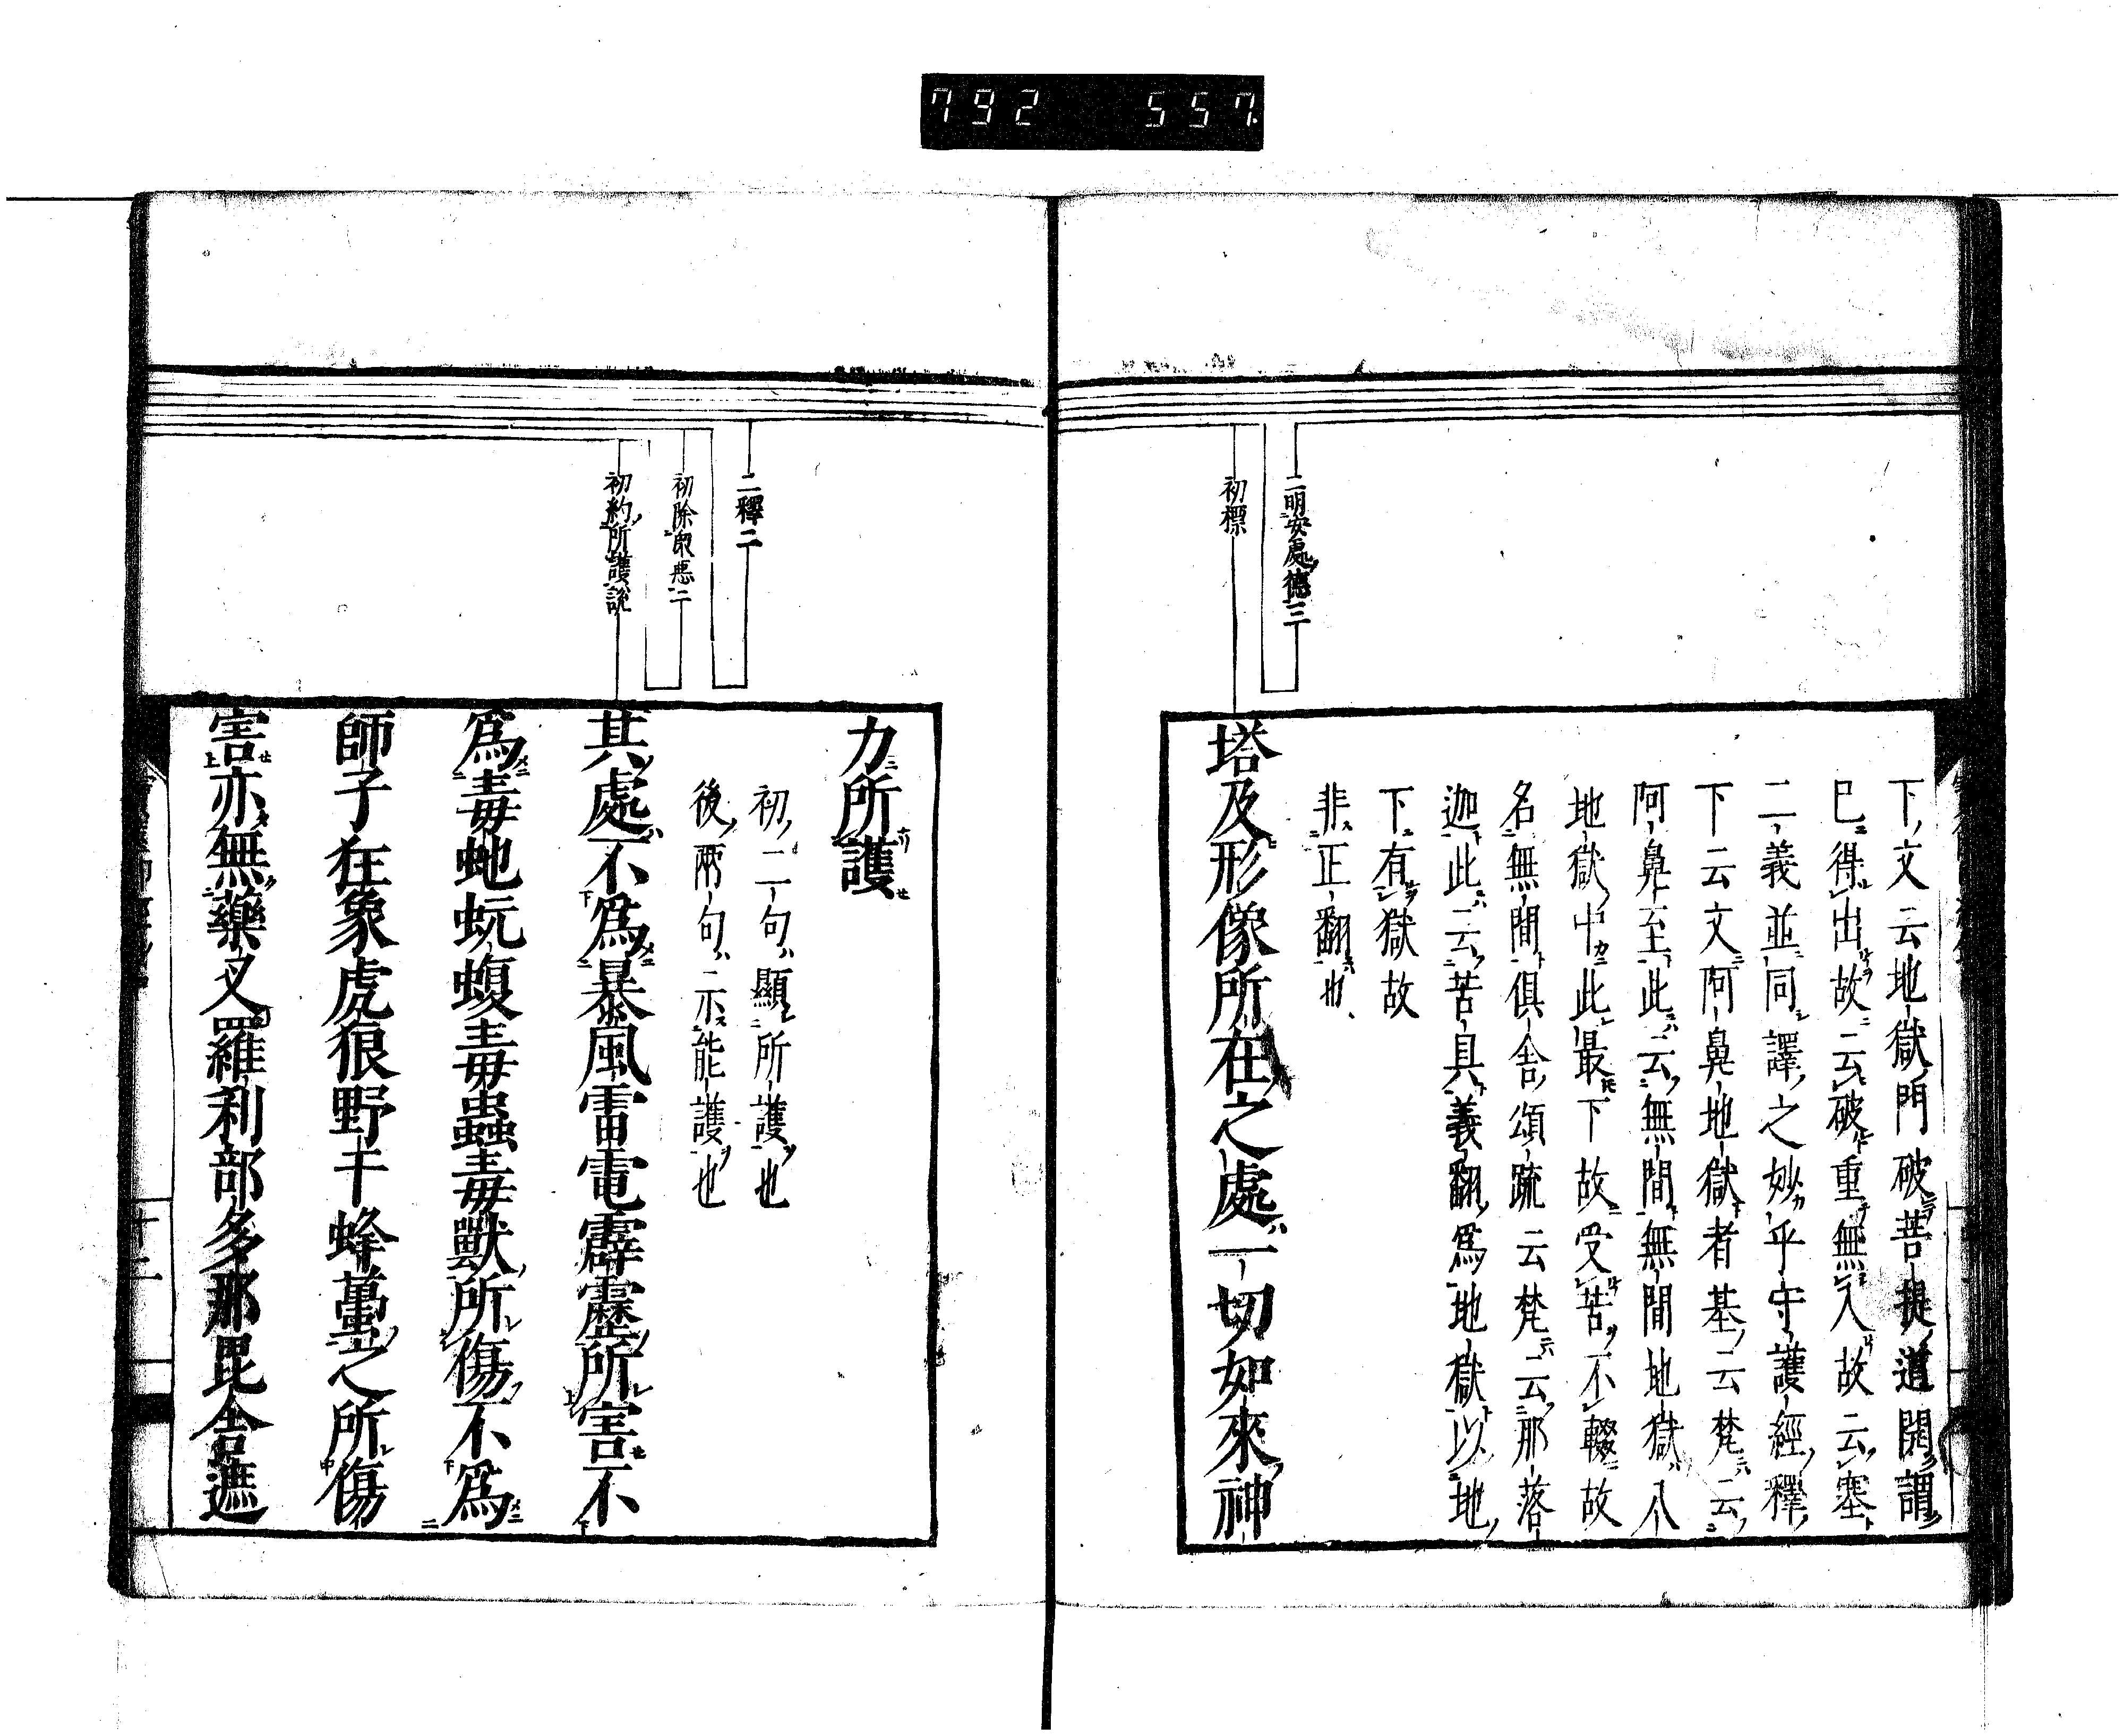 792 557
二明安處德三
初標
下文云地獄門破菩提道開謂
已得出故云破重無入故云塞
二義並同譯之妙乎守護經釋
下云文阿鼻地獄者基云梵云
阿鼻至此云無間無間地獄八
地獄中此最下故受苦不輟故
名無間俱舍頌疏云梵云那落
迦此云苦具義翻爲地獄以地
下有獄故
非正翻也
塔及形像所在之處一切如來神
二釋二
初除衆惡二
初約所護說
力所護
初二句顯所護也
後兩句示能護也
其處不爲暴風雷電霹靂所害不
爲毒虵蚖蝮毒蟲毒獸所傷不爲
師子狂象虎狼野干蜂蠆之所傷
害亦無藥叉羅利部多那毘舍遮
十二